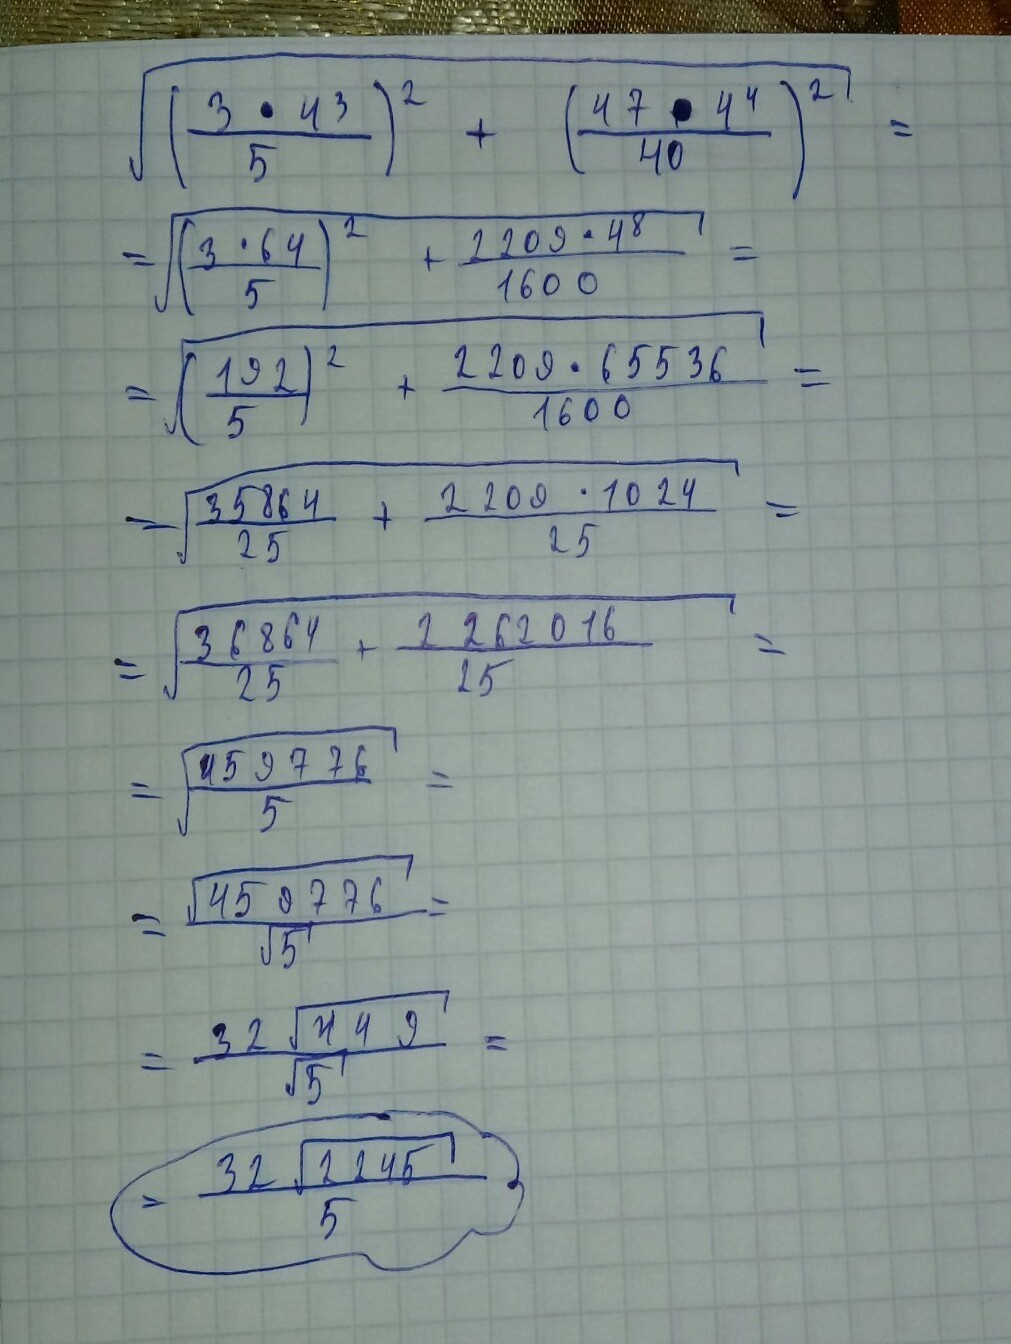 √((3 • 4³ / 5)² + (47 • 4⁴ / 40)²) =
= √((3 · 64 / 5)² + 2209 · 4⁸ / 1600) =
= √((192 / 5)² + 2209 · 65536 / 1600) =
= √(35864 / 25 + 2209 · 1024 / 25) =
= √(36864 / 25 + 2262016 / 25) =
= √(459776 / 5) =
= √459776 / √5 =
= 32 √449 / √5 =
= 32 √2245 / 5